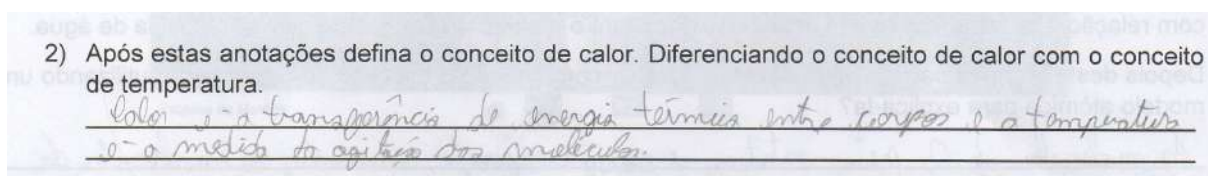 2) Após estas anotações defina o conceito de calor. Diferenciando o conceito de calor com o conceito
de temperatura.
Calor é a transferência de energia térmica entre corpos e a temperatura
é a medida da agitação das moléculas.